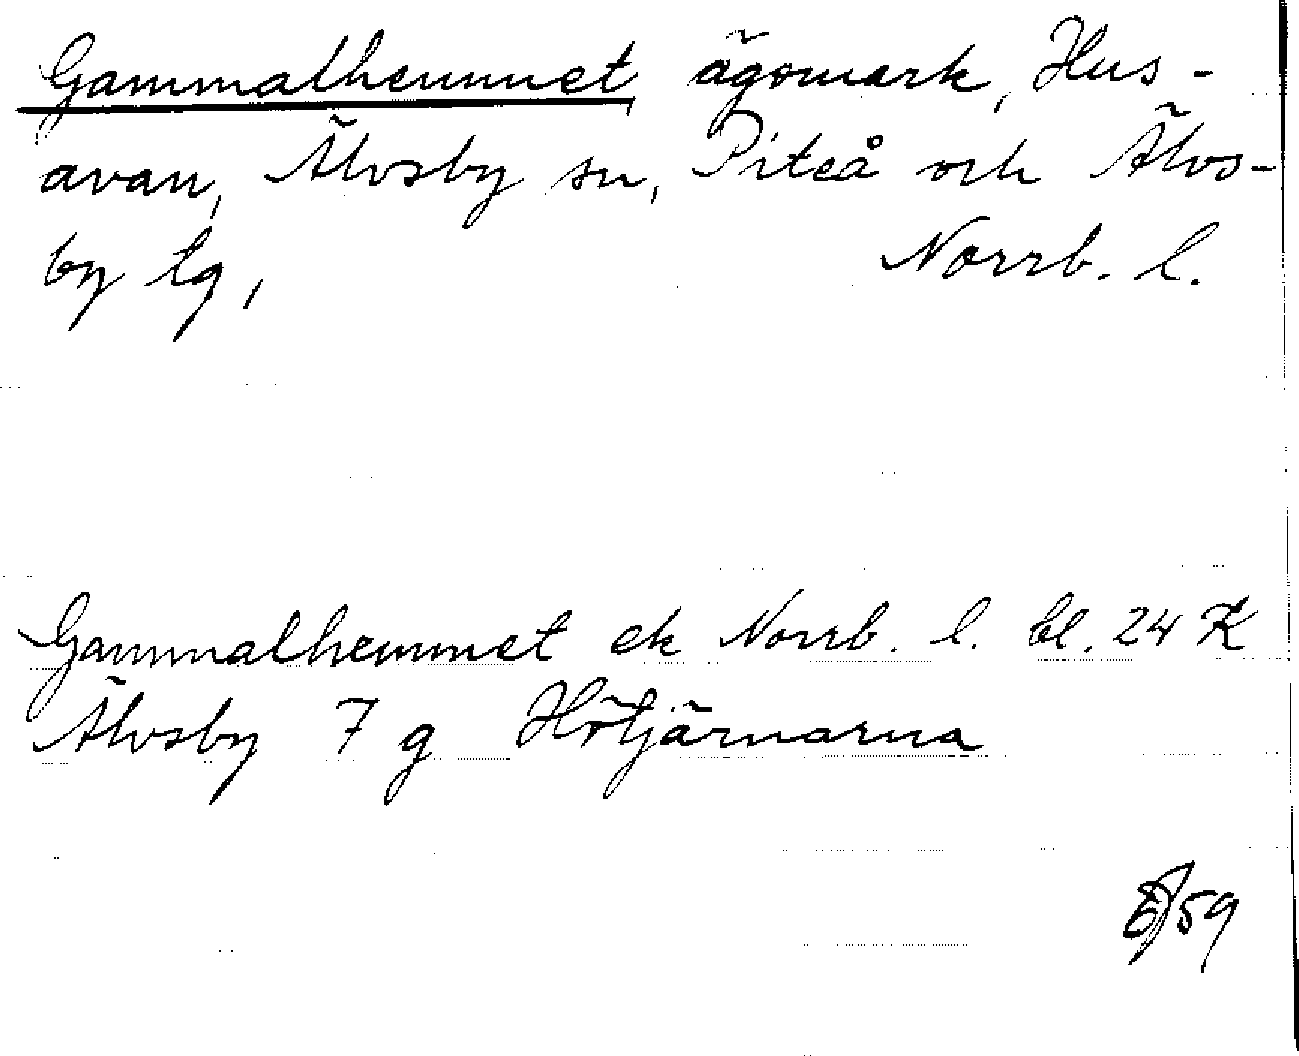 Gammalhemmet, ägomark, Hus-
avan, Älvsby sn, Piteå och Älvs-
by tg, Norrb. l.
Gammalhemmet ek Norrb. l. bl. 24 K
Älvsby 7 g Hötjärnarna
59